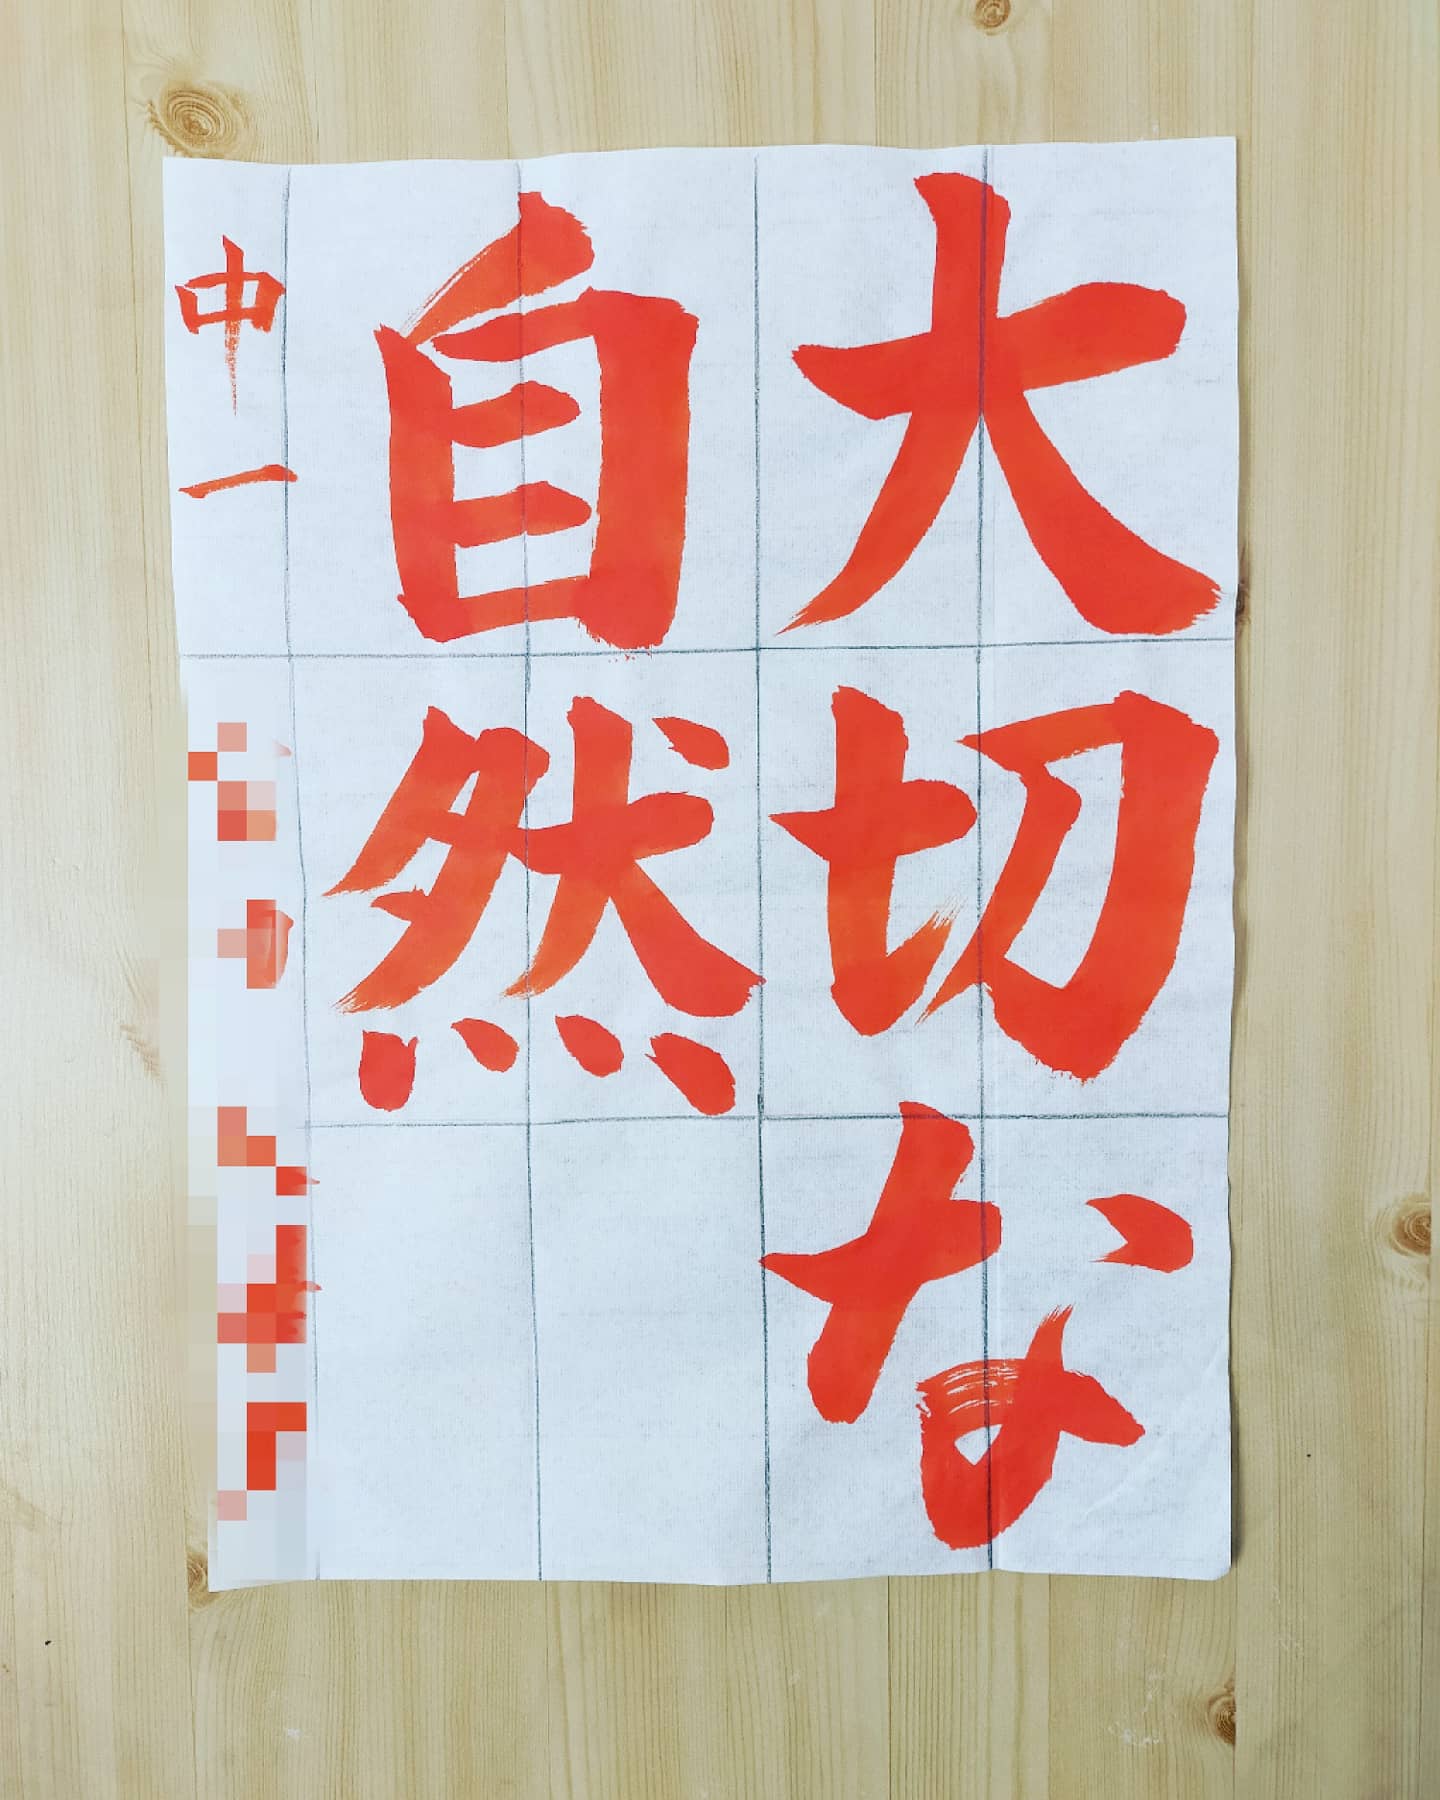 大切な
自然
中一